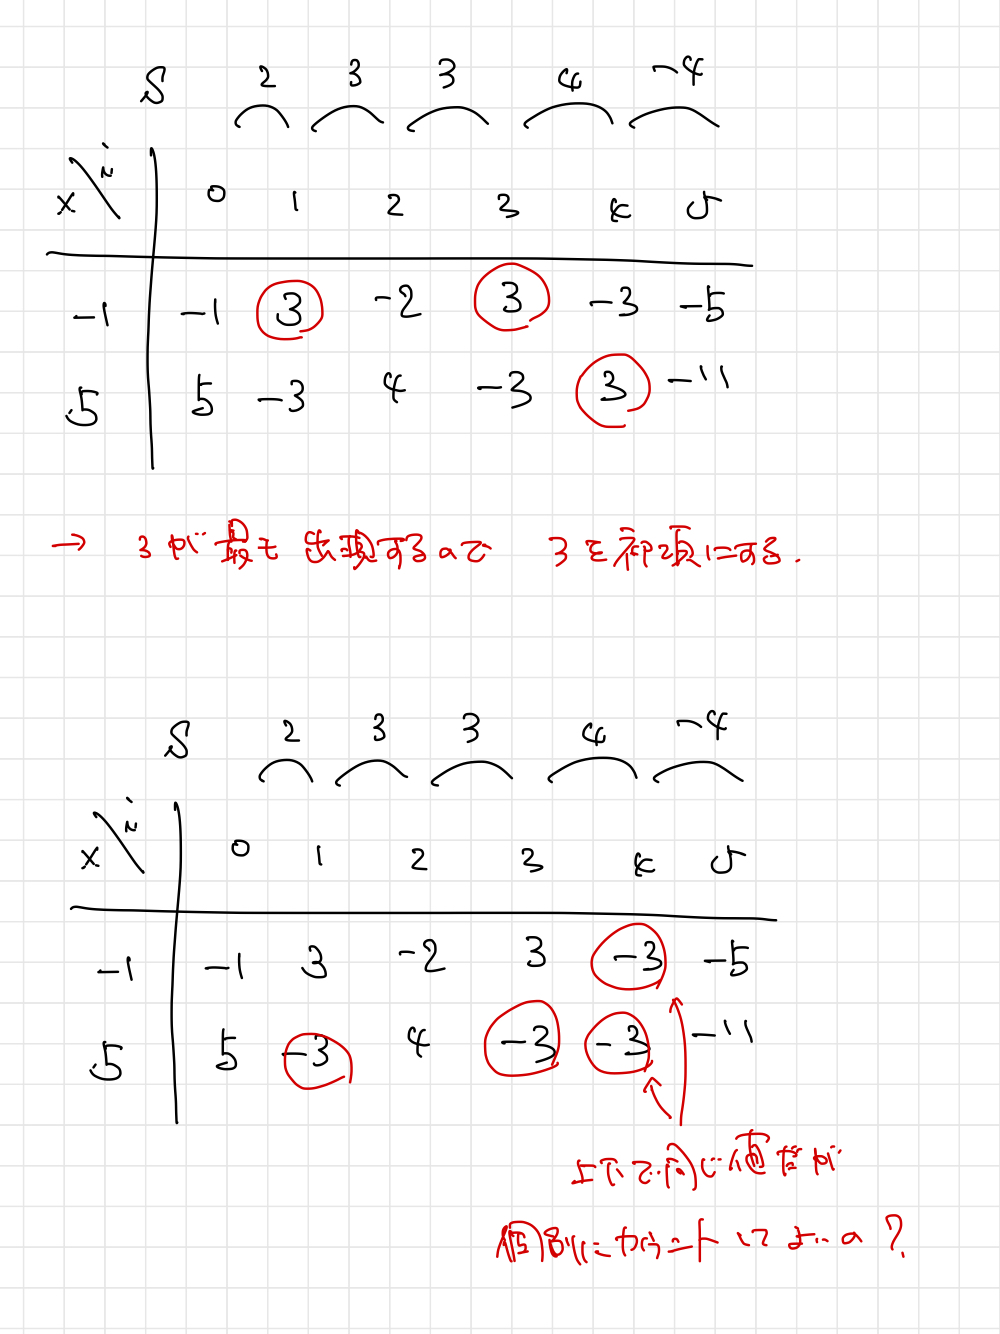 S 2 3 3 4 -4
x i 0 1 2 3 4 5
-1 -1 3 -2 3 -3 -5
5 5 -3 4 -3 3 -11
→ 3が最も出現するので 3を初項にする.
S 2 3 3 4 -4
x i 0 1 2 3 4 5
-1 -1 3 -2 3 -3 -5
5 5 -3 4 -3 -3 -11
上下で同じ値だが
個別にカウントしてよいの?